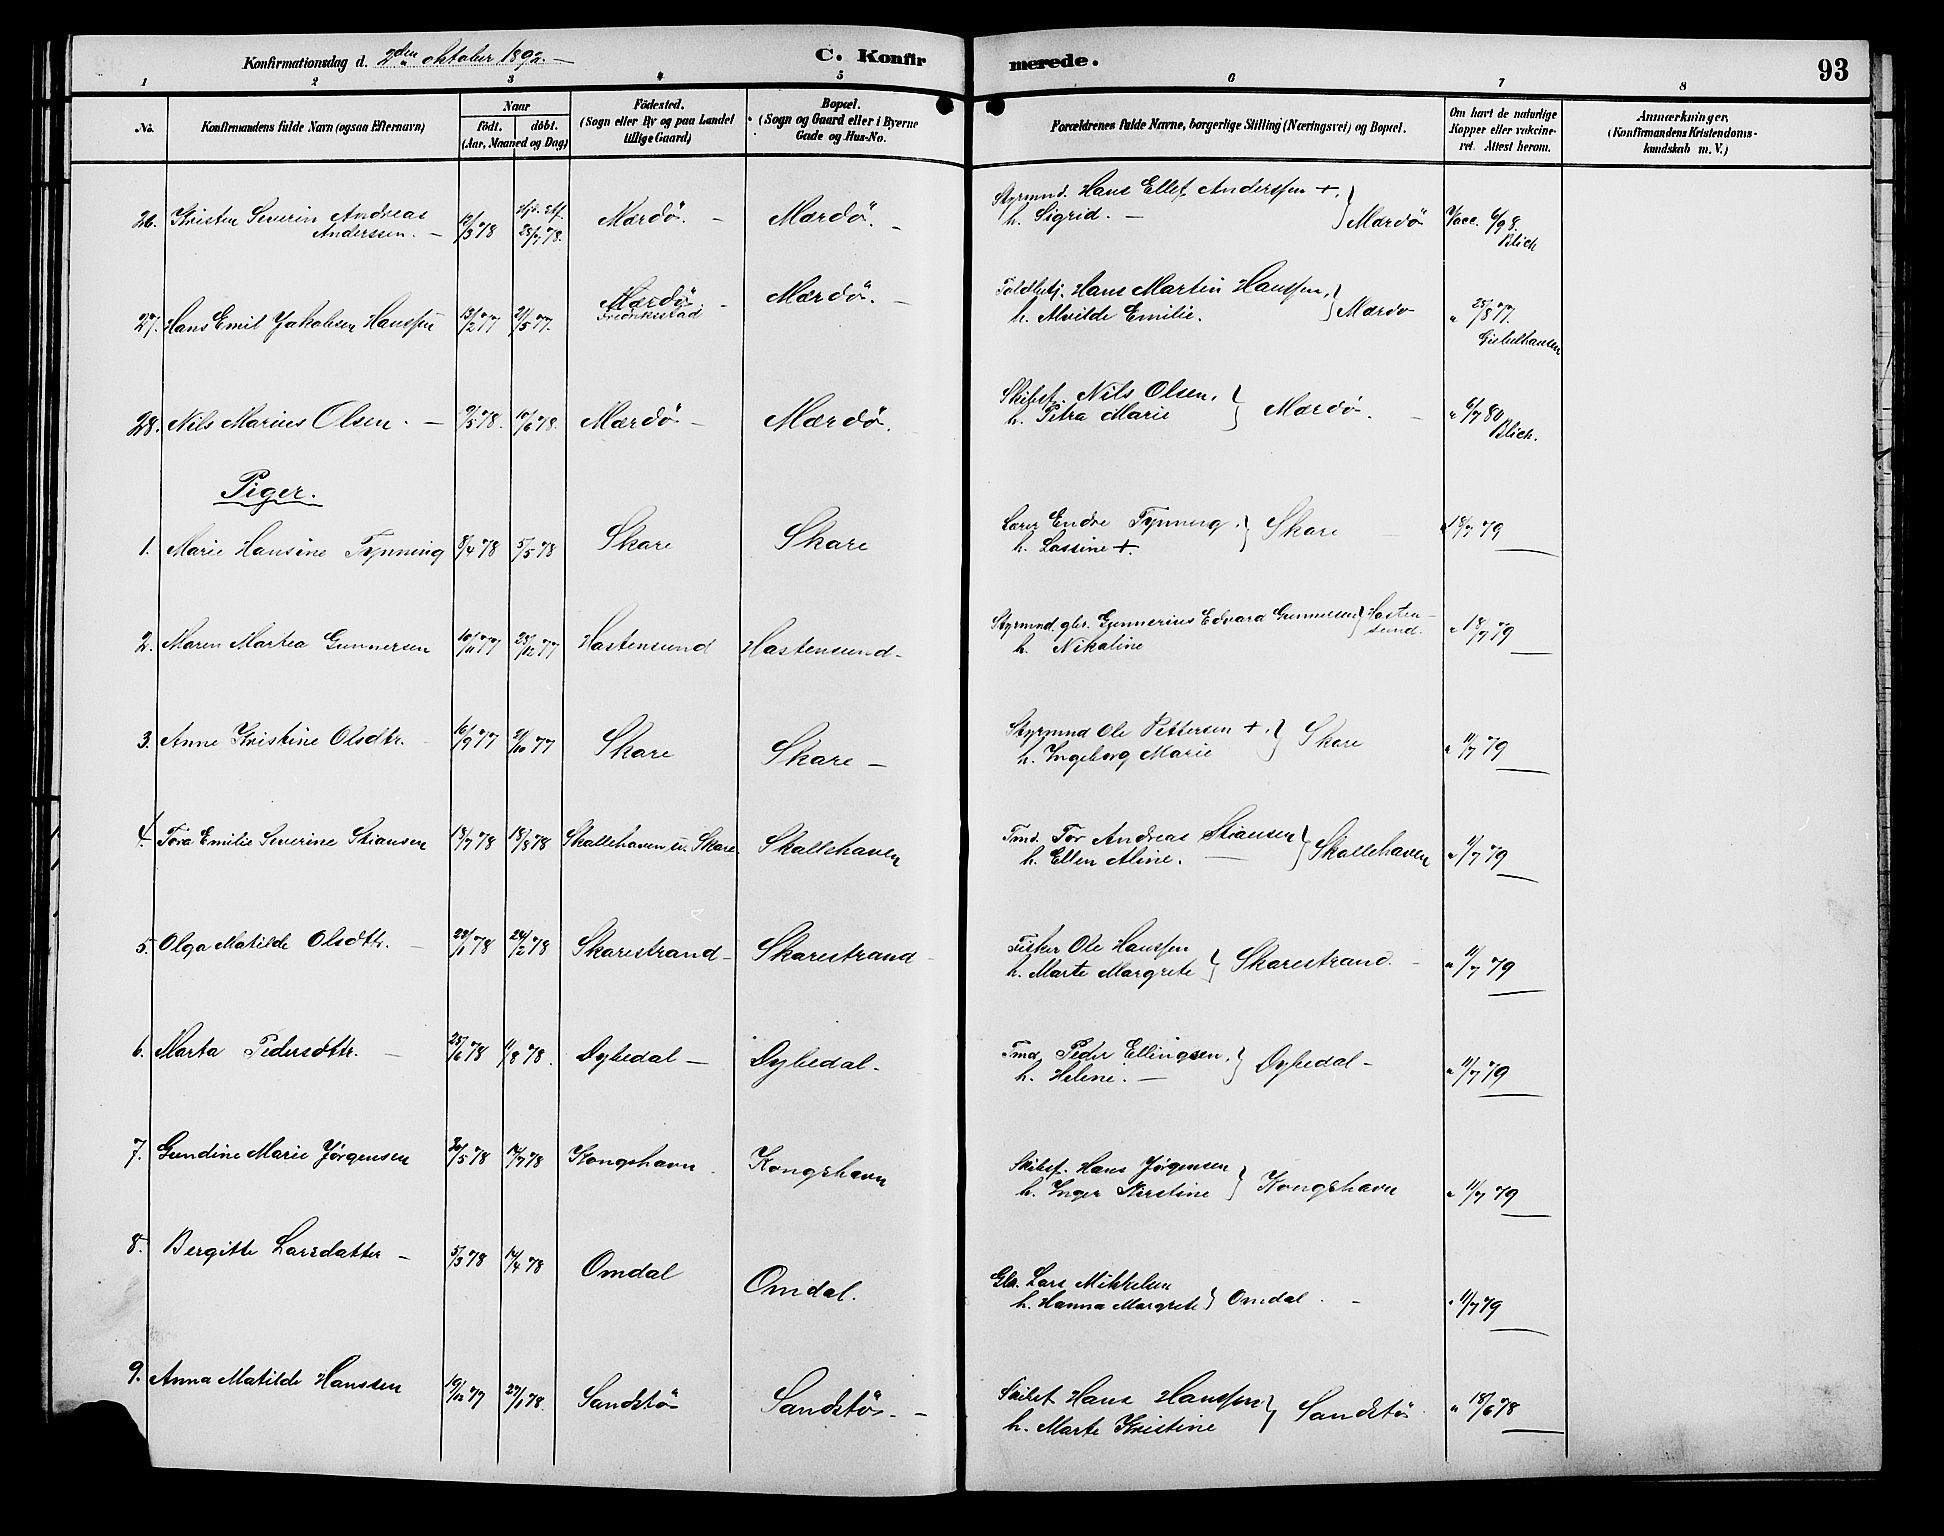 Konfirmationsdag d. 2den oktober 1892. — C. Konfirmerede. 93
1 2 3 4 5 6 7 8
No. Konfirmandens fulde Navn (ogsaa Efternavn) Naar födt. döbt. (Aar, Maaned og Dag) Födested. (Sogn eller By og paa Landet tillige Gaard) Bopæl. (Sogn og Gaard eller i Byerne Gade og Hus-No. Forældrenes fulde Navne, borgerlige Stilling (Næringsvei) og Bopæl. Om havt de naturlige Kopper eller vakcineret. Attest herom. Anmærkninger. (Konfirmandens Kristendomskundskab m. V.)
26. Kristen Severin Andreas Anderssen. — 12/3 78 28/7 78. Mærdö. — Mærdö. — Styrmnd. Hans Ellef Anderssen +. h. Sigrid. — } Mærdö Vacc. 6/9 8. Blich
27. Hans Emil Jakobsen Hanssen 13/2 77 21/5 77. Mærdö. — Fredriksstad Mærdö. — Toldbetj. Hans Martin Hanssen, h. Alvilde Emilie. } Mærdö " 25/8 77. Giebelhausen
28. Nils Marius Olsen. — 9/5 78. 10/6 78. Mærdö — Mærdö. Skibsf. Nils Olsen, h. Petra Marie } Mærdö. — " 6/7 80 Blich.
Piger.
1. Marie Hansine Tynning 8/4 78 5/5 78 Skare Skare Lærer Endre Tynning. h. Lassine +. } Skare — " 18/7 79
2. Maren Martea Gunnersen 10/11 77 28/12 77 Hastensund Hastensund — Styrmnd. gbr. Gunnerius Edvard Gunnersen h. Nikoline } Hastensund. " 18/7 79
3. Anne Kristine Olsdtr. — 16/9 77 21/10 77 Skare Skare — Styrmnd Ole Pettersen +. h. Ingeborg Marie } Skare " 11/7 79
4. Tora Emilie Severine Stiansen 13/7 78 18/8 78 Skallehaven u. Skare. Skallehaven Tmd. Tor Andreas Stiansen h. Ellen Aline. — } Skallehaven " 11/7 79
5. Olga Matilde Olsdtr. — 22/1 78 24/2 78 Skarestrand — Skarestrand — Fisker Ole Hanssen h. Marte Margrete } Skarestrand. — " 11/7 79
6. Marta Pedersdtr. — 25/6 78 11/8 78. Dybedal — Dybedal. Tmd. Peder Ellingsen. h. Helene. — } Dybedal — " 11/7 79
7. Gundine Marie Jørgensen 30/5 78 14/7 78 Kongshavn. Kongshavn Skibsf. Hans Jørgensen h. Inger Kirstine } Kongshavn " 11/7 79
8. Bergitte Larsdatter — 5/3 78 14/4 78 Omdal Omdal. Gbr. Lars Mikkelsen h. Hanna Margrete } Omdal. — " 11/7 79
9. Anna Matilde Hanssen 19/12 77 27/1 78. Sandstö Sandstö. — Skibsf Hans Hanssen h. Marte Kristine } Sandstö " 18/6 78